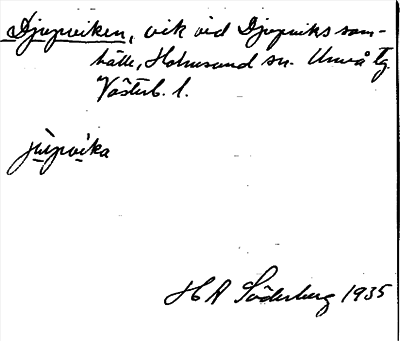 Djupviken, vik vid Djupviks sam-
hälle, Holmsund sn. Umeå tg.
Västerb. l.
jupvika
H A Söderberg 1935